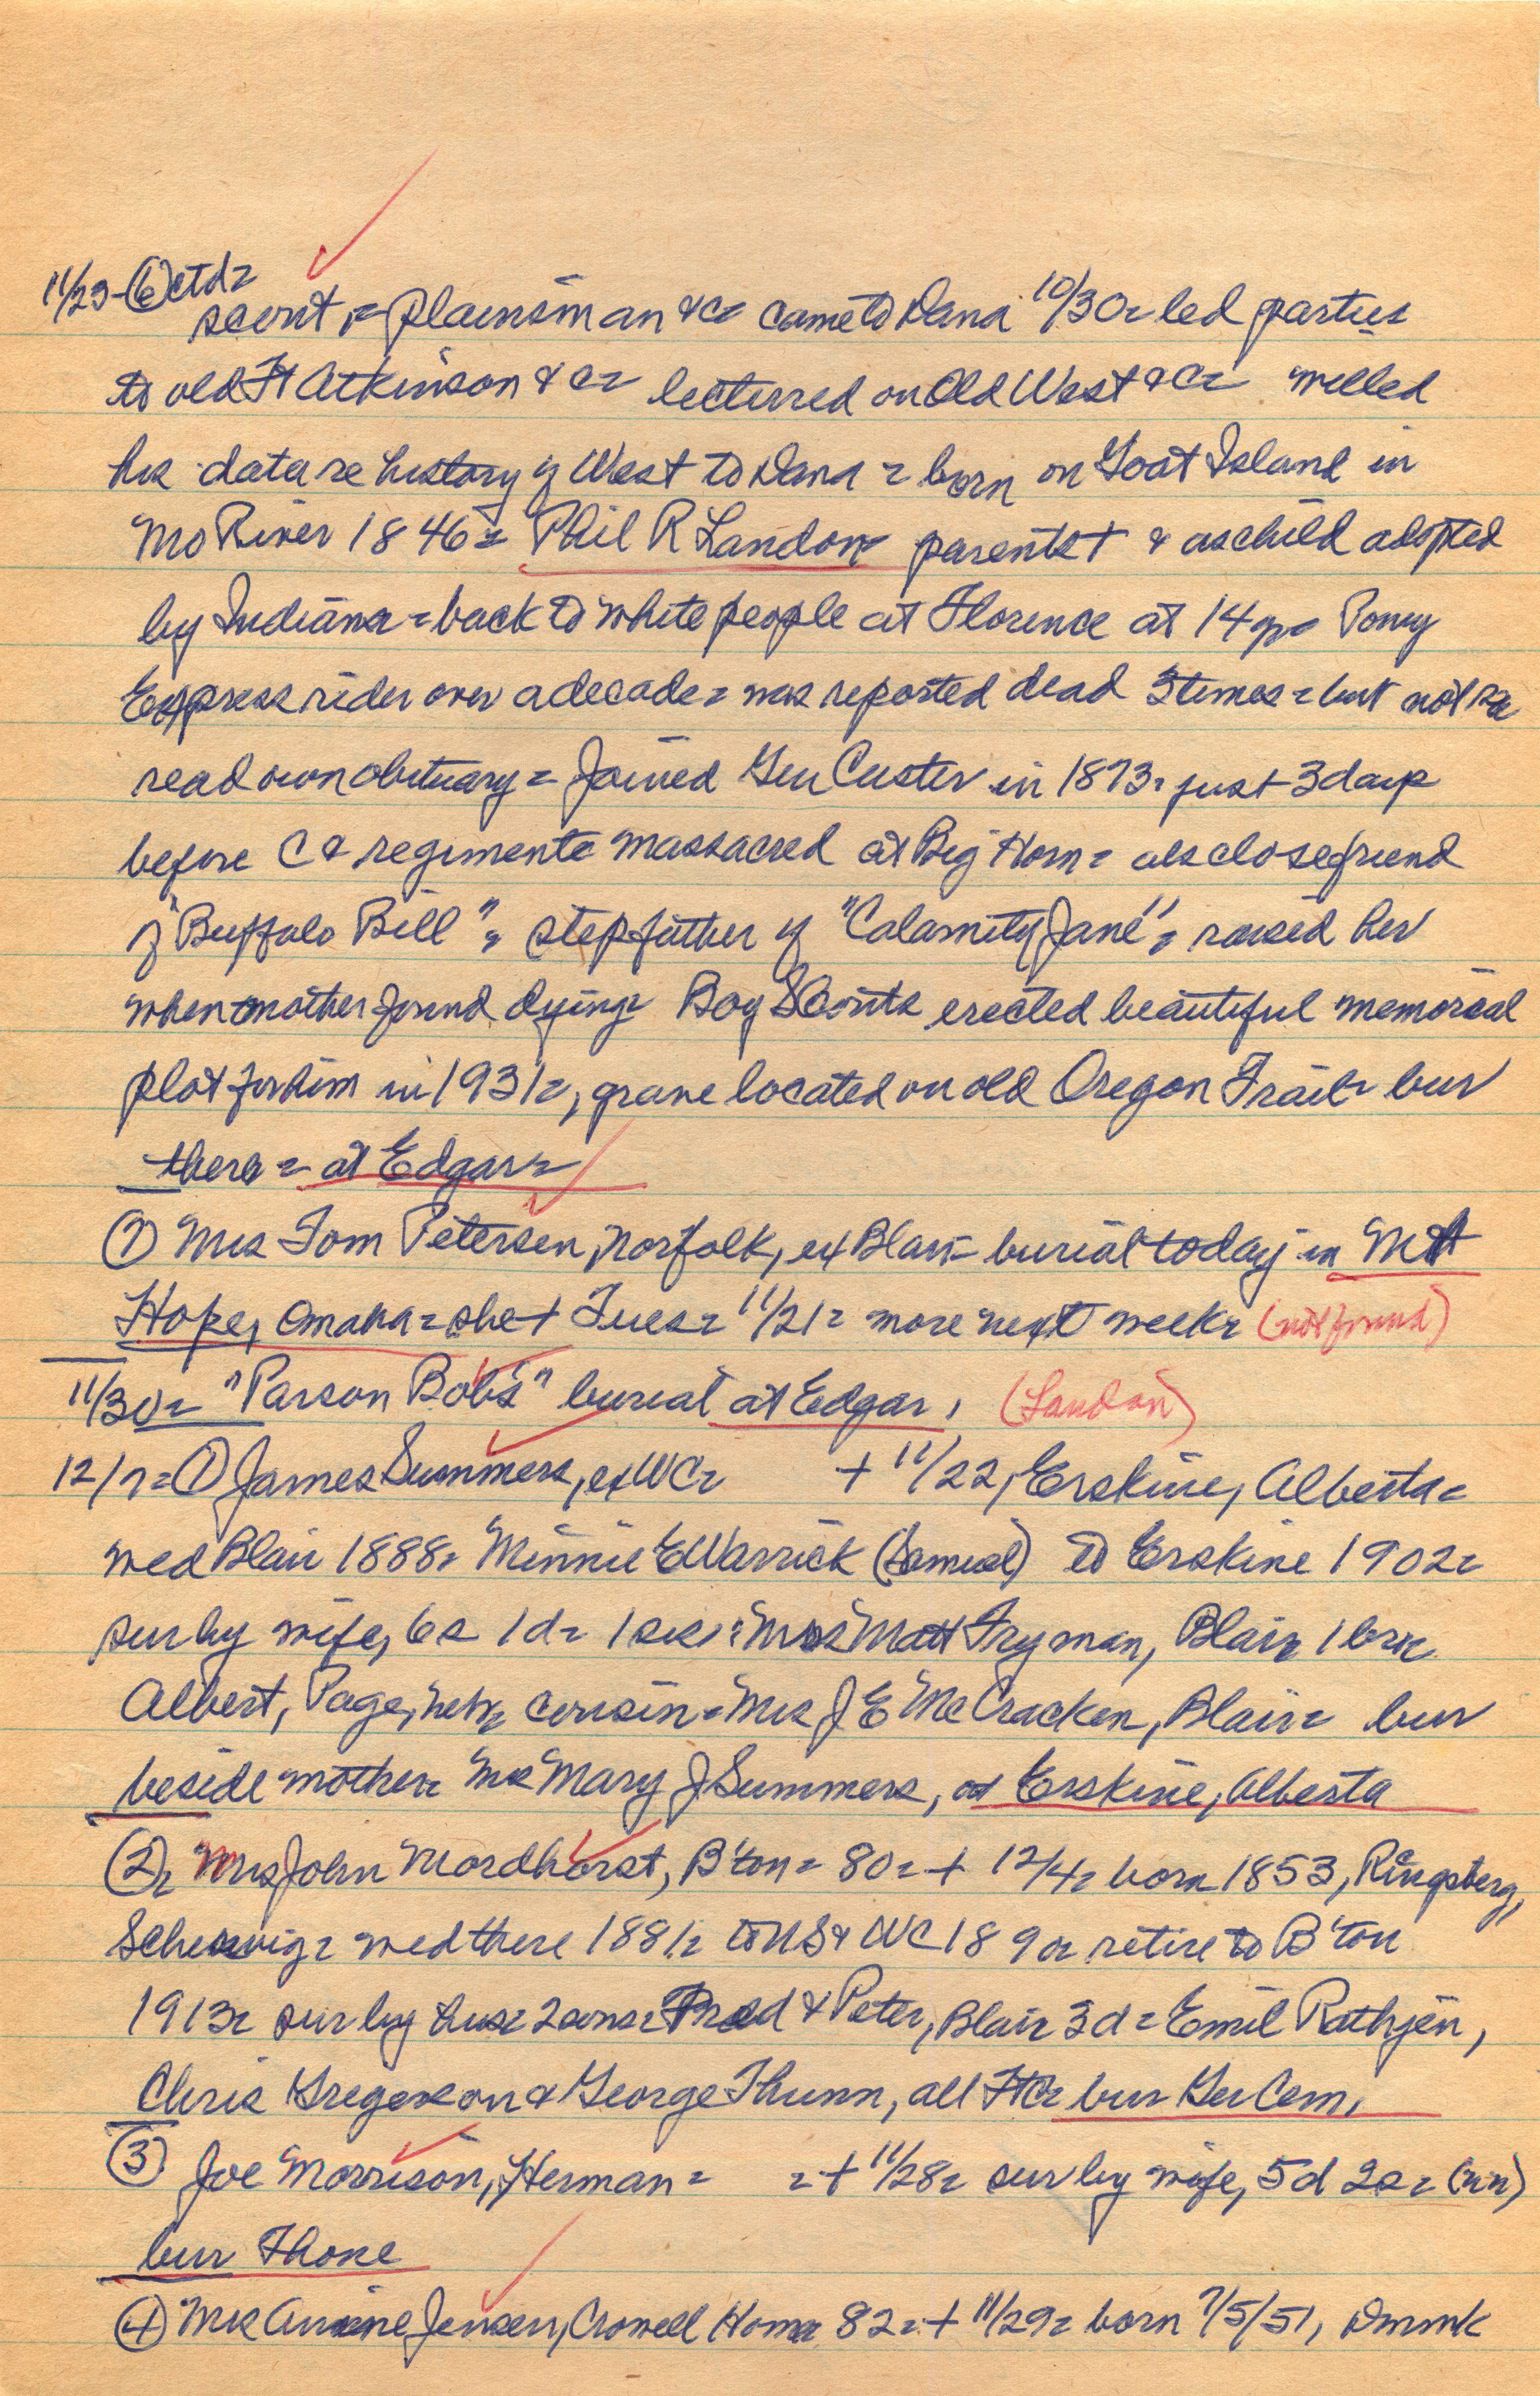 11/23-⑥ctd=
scout,= plainsman &c= came to Dana 10/30= led parties
to old Ft Atkinson &c= lecturred on Old West &c= willed
his data re history of West to Dana = born on Goat Island in
Mo River 1846= Phil R Landon parents+ & as child adopted
by Indians = back to white people at Florence at 14 yrs= Pony
Express rider over a decade= was reported dead 3 times = but not
read own obituary = Joined Gen Custer in 1873= just 3 days
before C & regimente massacred at Big Horn= als close friend
of "Buffalo Bill"= step father of "Calamity Jane"= raised her
when mother found dying= Boy Scouts erected beautiful memorial
plot for him in 1931=, grave located on old Oregon Trail= bur
there = at Edgar=
⑦ Mrs Tom Petersen, Norfolk, ex Blair= burial today in Mt
Hope, Omaha= she+ Tues= 11/21= more next week= (not found)
11/30= "Parson Bob's" burial at Edgar, (Landon)
12/7=① James Summers, exWC= + 11/22, Erskine, Alberta=
wed Blair 1888= Minnie E Warrick (Samuel) to Erskine 1902=
sur by wife, 6s 1d= 1 sis: Mrs Matt Fryman, Blair= 1 bro=
Albert, Page, Neb= cousin= Mrs J E McCracken, Blair= bur
beside mother= Mrs Mary J Summers, at Erskine, Alberta
②= Mrs John Mordhorst, B'ton= 80=+ 12/4= born 1853, Ringsberg,
Scheswig= wed there 1881= to US & WC 1890= retire to B'ton
1913= sur by hus= 2 sons= Fred & Peter, Blair= 3d= Emil Rathjen,
Chris Gregerson & George Thunn, all FtC= bur Ger Cem,
③ Joe Morrison, Herman= =+ 11/28= sur by wife, 5d 2s= (nn)
bur Thone
④ Mrs Jensen, Crowell Home 82=+ 11/29= born 7/5/51, Dnmk